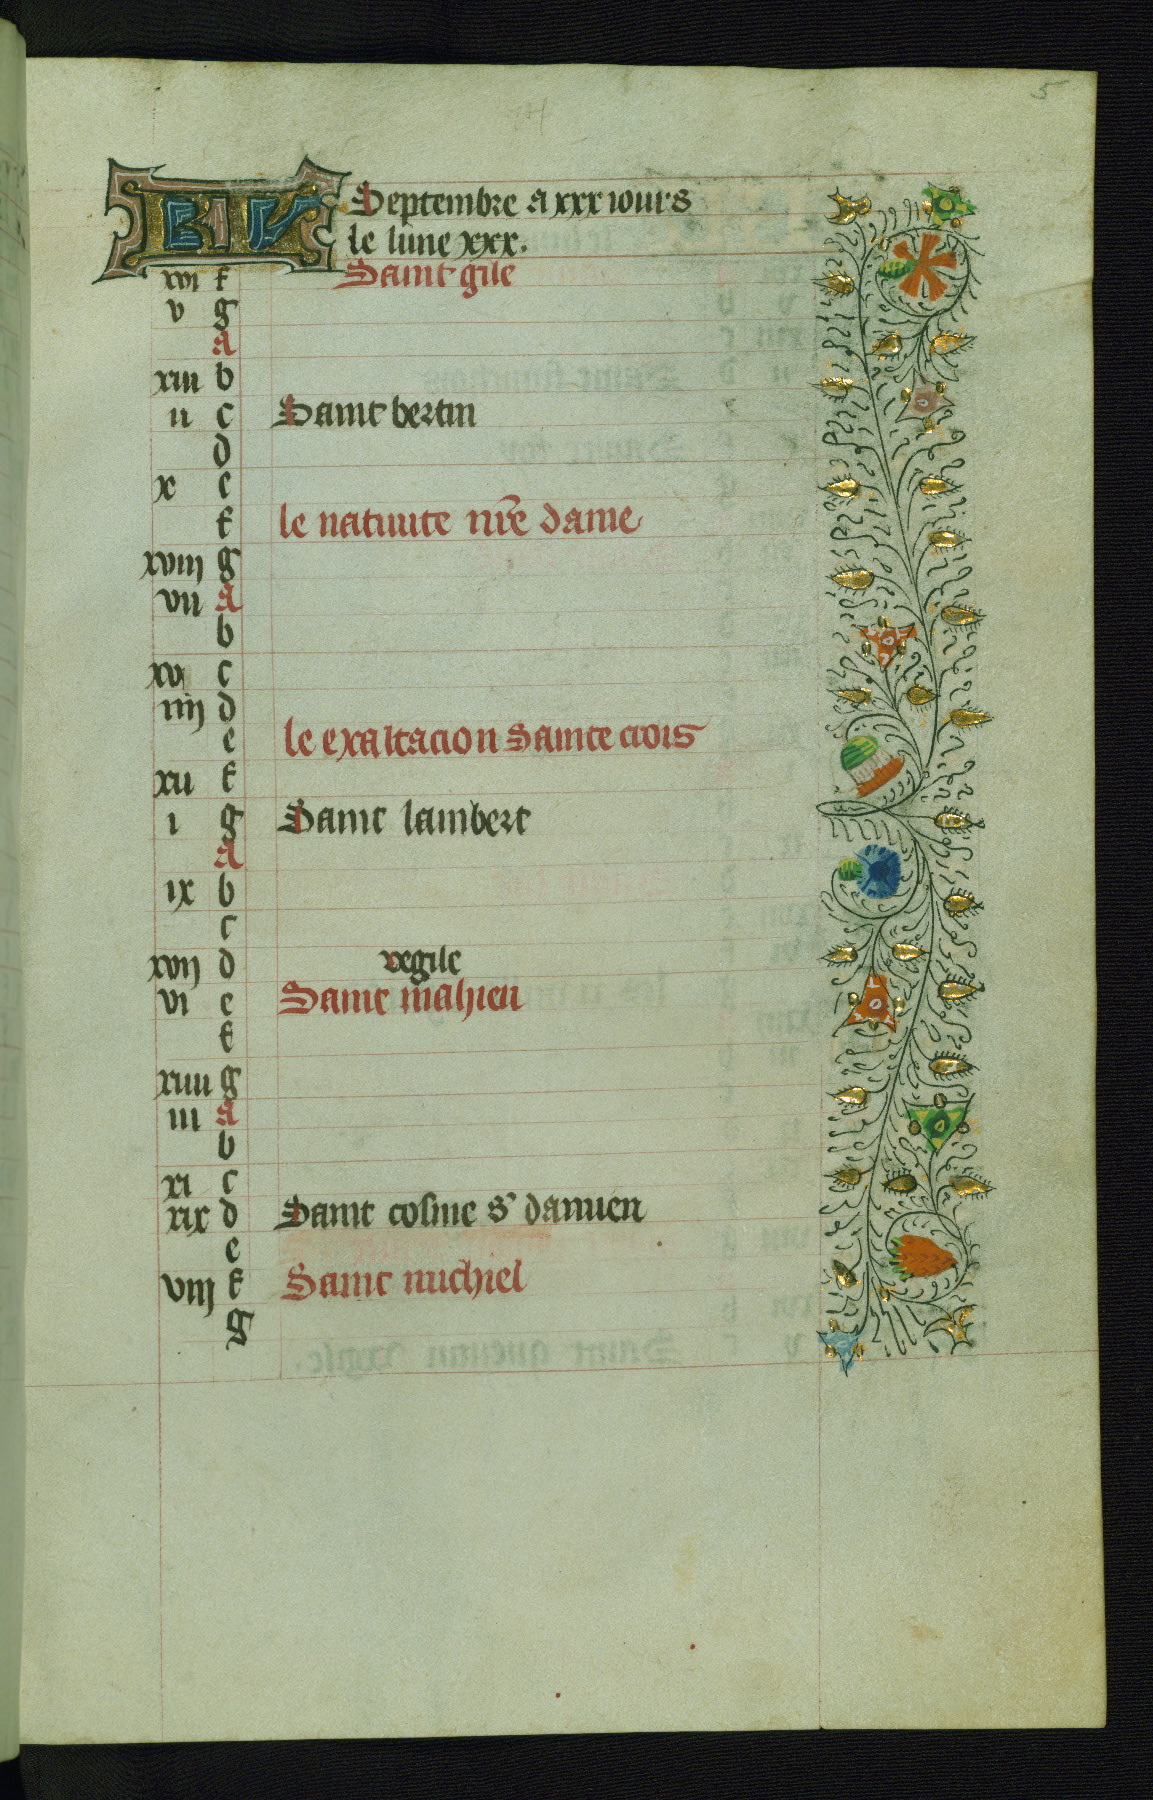 5
KL Septembre a xxx iours
le lune xxx.
xvi f Saint gile
v g
a
xiii b
ii c Saint bertin
d
x e
f le natiuite nr̄e dame
xviii g
vii a
b
xv c
iiii d
e le exaltacion Sainte crois
xii f
i g Saint lambert
a
ix b
c
xvii d vegile
vi e Saint mahieu
f
xiiii g
iii a
b
xi c
xix d Saint cosme s' damien
e
viii f Saint michiel
g